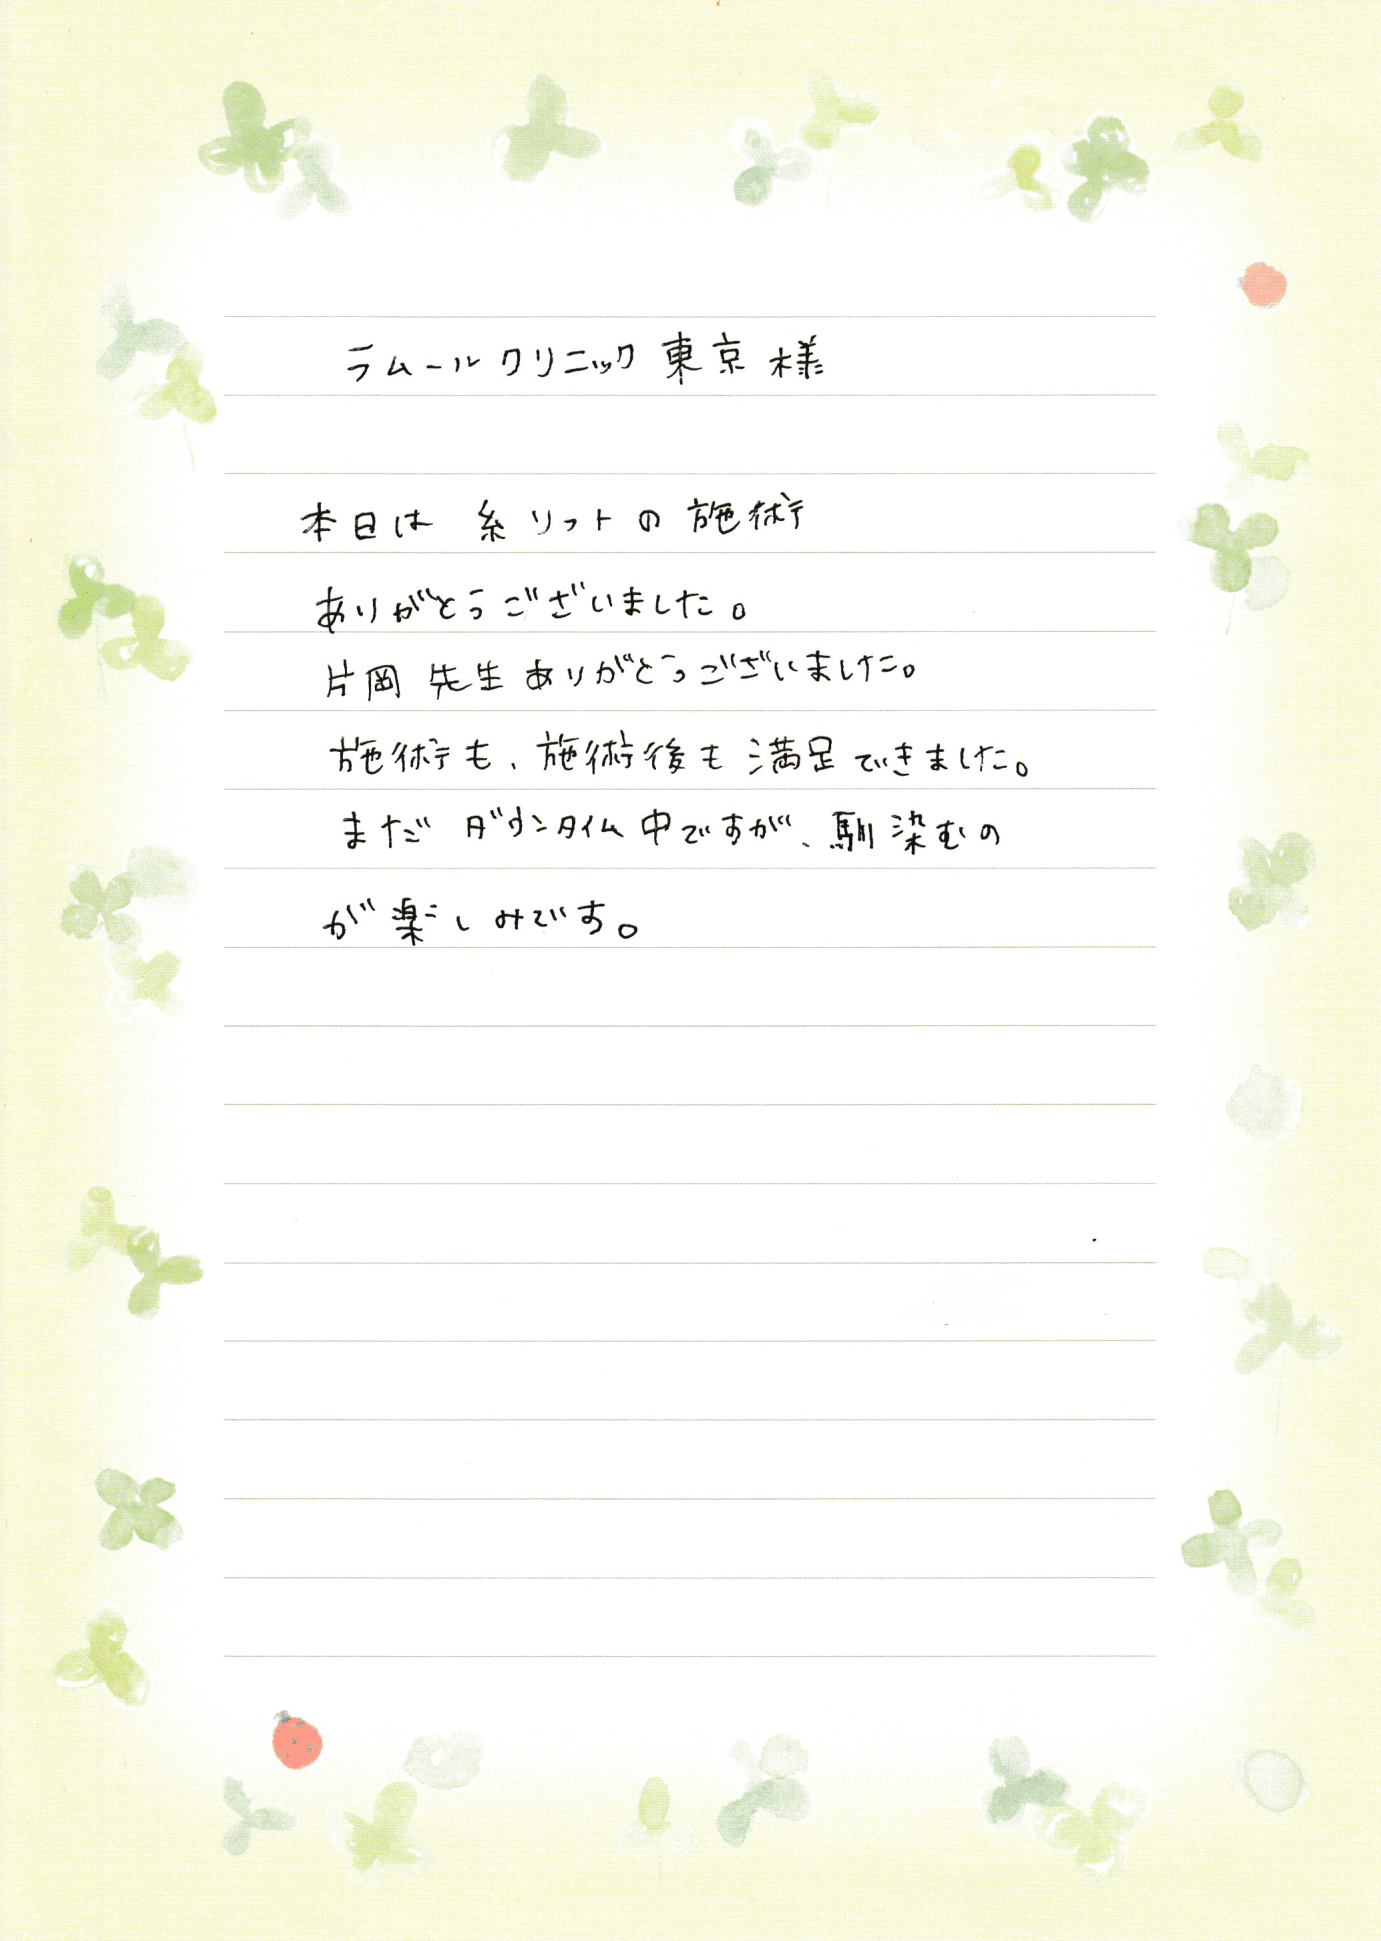 ラムールクリニック東京様
本日は 糸リフトの施術
ありがとうございました。
片岡先生ありがとうございました。
施術も、施術後も満足できました。
まだ ダウンタイム中ですが、馴染むの
が楽しみです。